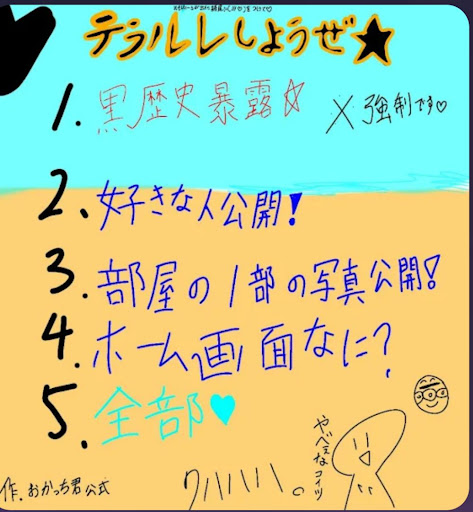 テラルレしようぜ★
1. 黒歴史暴露☆
×強制です♡
2. 好きな人公開!
3. 部屋の1部の写真公開!
4. ホーム画面なに?
5. 全部♥
やべぇなコイツ
ワハハハハ。
作. おかっち君公式